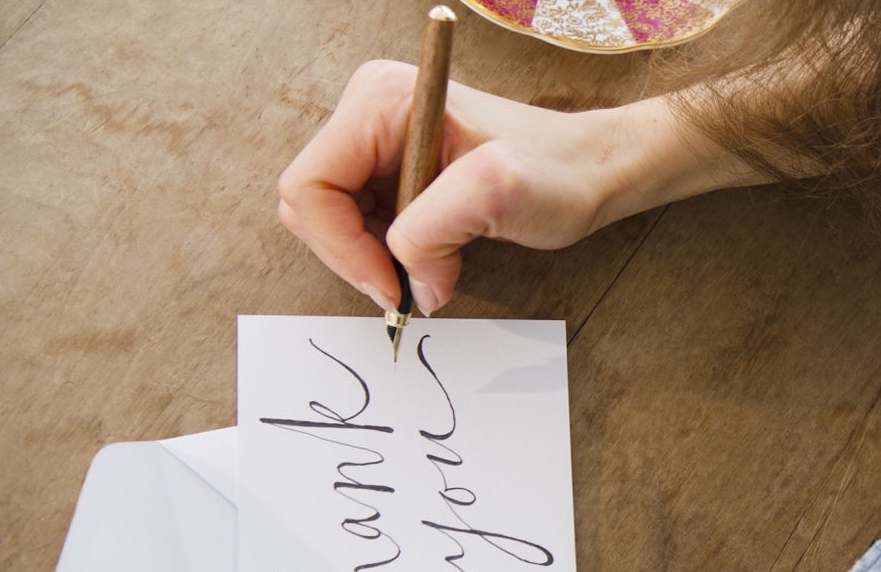 ank
you